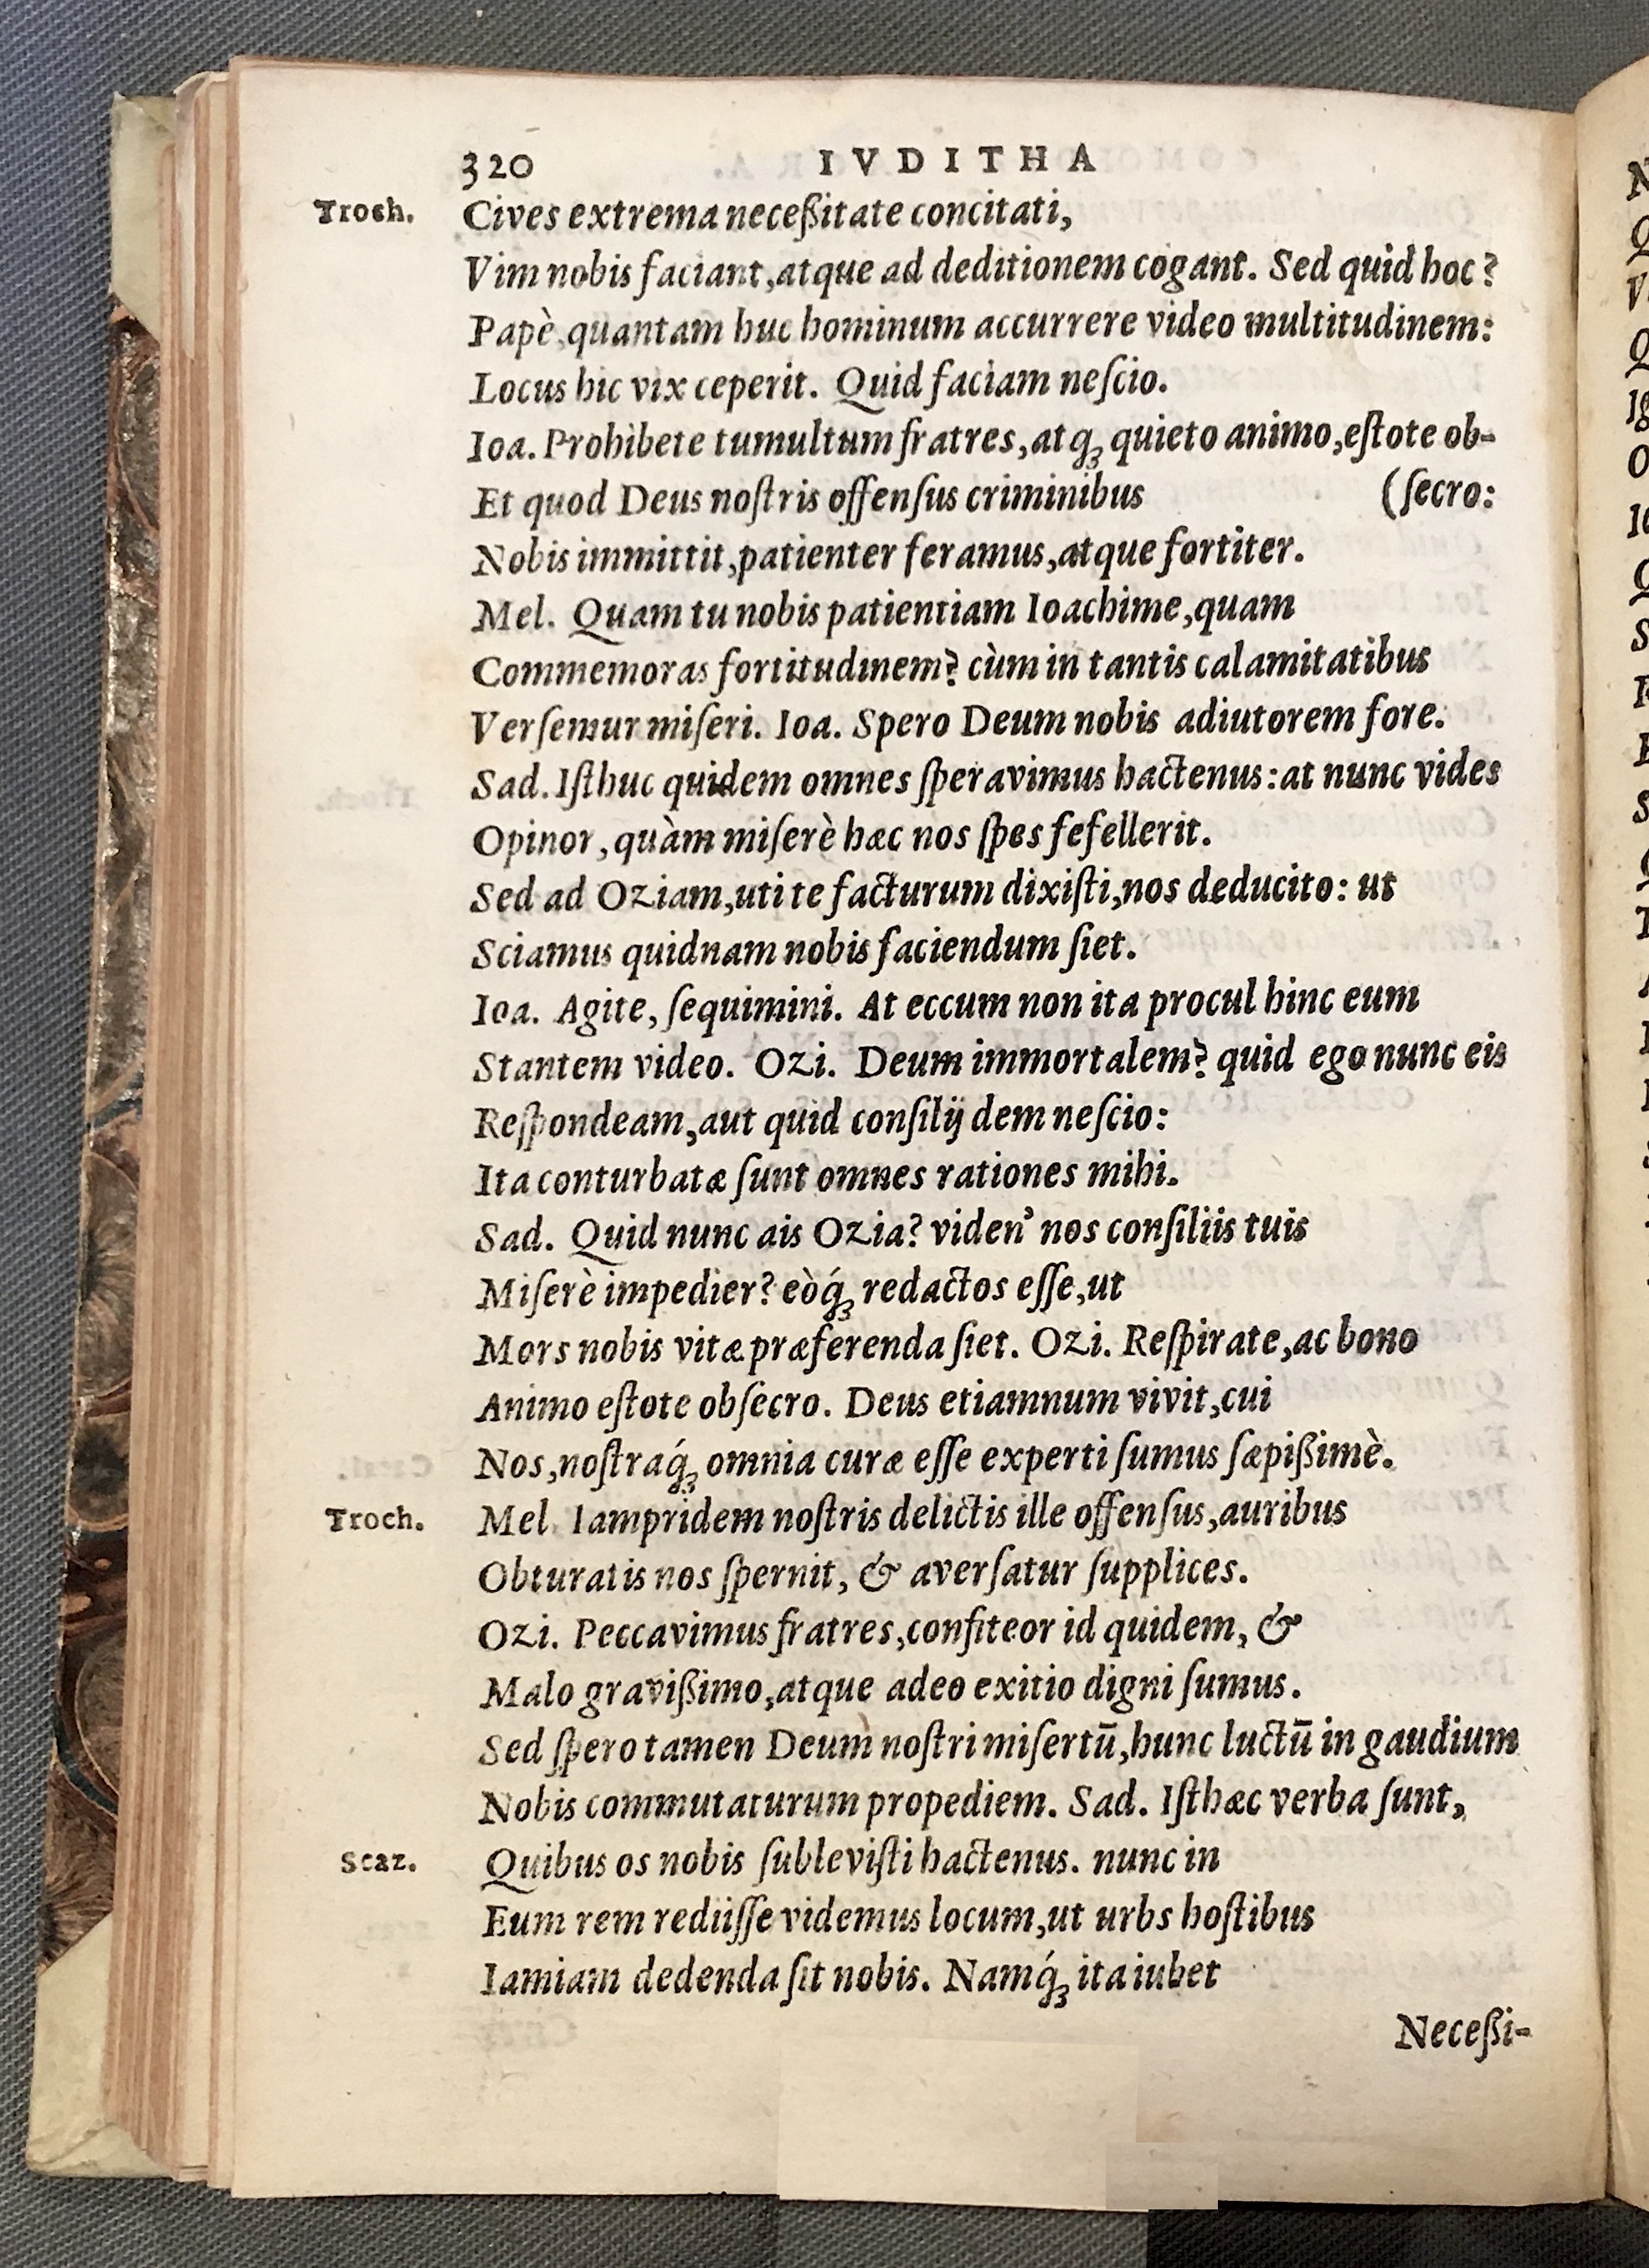 320 IVDITHA
Troch. Cives extrema neceßitate concitati,
Vim nobis faciant, atque ad deditionem cogant. Sed quid hoc?
Papè, quantam huc hominum accurrere video multitudinem:
Locus hic vix ceperit. Quid faciam neſcio.
Ioa. Prohibete tumultum fratres, atq́ꝫ quieto animo, eſtote ob-
Et quod Deus noſtris offenſus criminibus (ſecro:
Nobis immittit, patienter feramus, atque fortiter.
Mel. Quam tu nobis patientiam Ioachime, quam
Commemoras fortitudinem? cùm in tantis calamitatibus
Verſemur miſeri. Ioa. Spero Deum nobis adiutorem fore.
Sad. Iſthuc quidem omnes ſperavimus hactenus: at nunc vides
Opinor, quàm miſerè hæc nos ſpes fefellerit.
Sed ad Oziam, uti te facturum dixiſti, nos deducito: ut
Sciamus quidnam nobis faciendum ſiet.
Ioa. Agite, ſequimini. At eccum non ita procul hinc eum
Stantem video. Ozi. Deum immortalem? quid ego nunc eis
Reſpondeam, aut quid conſilij dem neſcio:
Ita conturbatæ ſunt omnes rationes mihi.
Sad. Quid nunc ais Ozia? viden' nos conſiliis tuis
Miſerè impedier? eòq́ꝫ redactos eſſe, ut
Mors nobis vitæ præferenda ſiet. Ozi. Reſpirate, ac bono
Animo eſtote obſecro. Deus etiamnum vivit, cui
Nos, noſtraq́ꝫ omnia curæ eſſe experti ſumus ſæpißimè.
Troch. Mel. Iampridem noſtris delictis ille offenſus, auribus
Obturatis nos ſpernit, & averſatur ſupplices.
Ozi. Peccavimus fratres, confiteor id quidem, &
Malo gravißimo, atque adeo exitio digni ſumus.
Sed ſpero tamen Deum noſtri miſertū, hunc luctū in gaudium
Nobis commutaturum propediem. Sad. Iſthæc verba ſunt,
Scaz. Quibus os nobis ſubleviſti hactenus. nunc in
Eum rem rediiſſe videmus locum, ut urbs hoſtibus
Iamiam dedenda ſit nobis. Namq́ꝫ ita iubet
Neceßi-